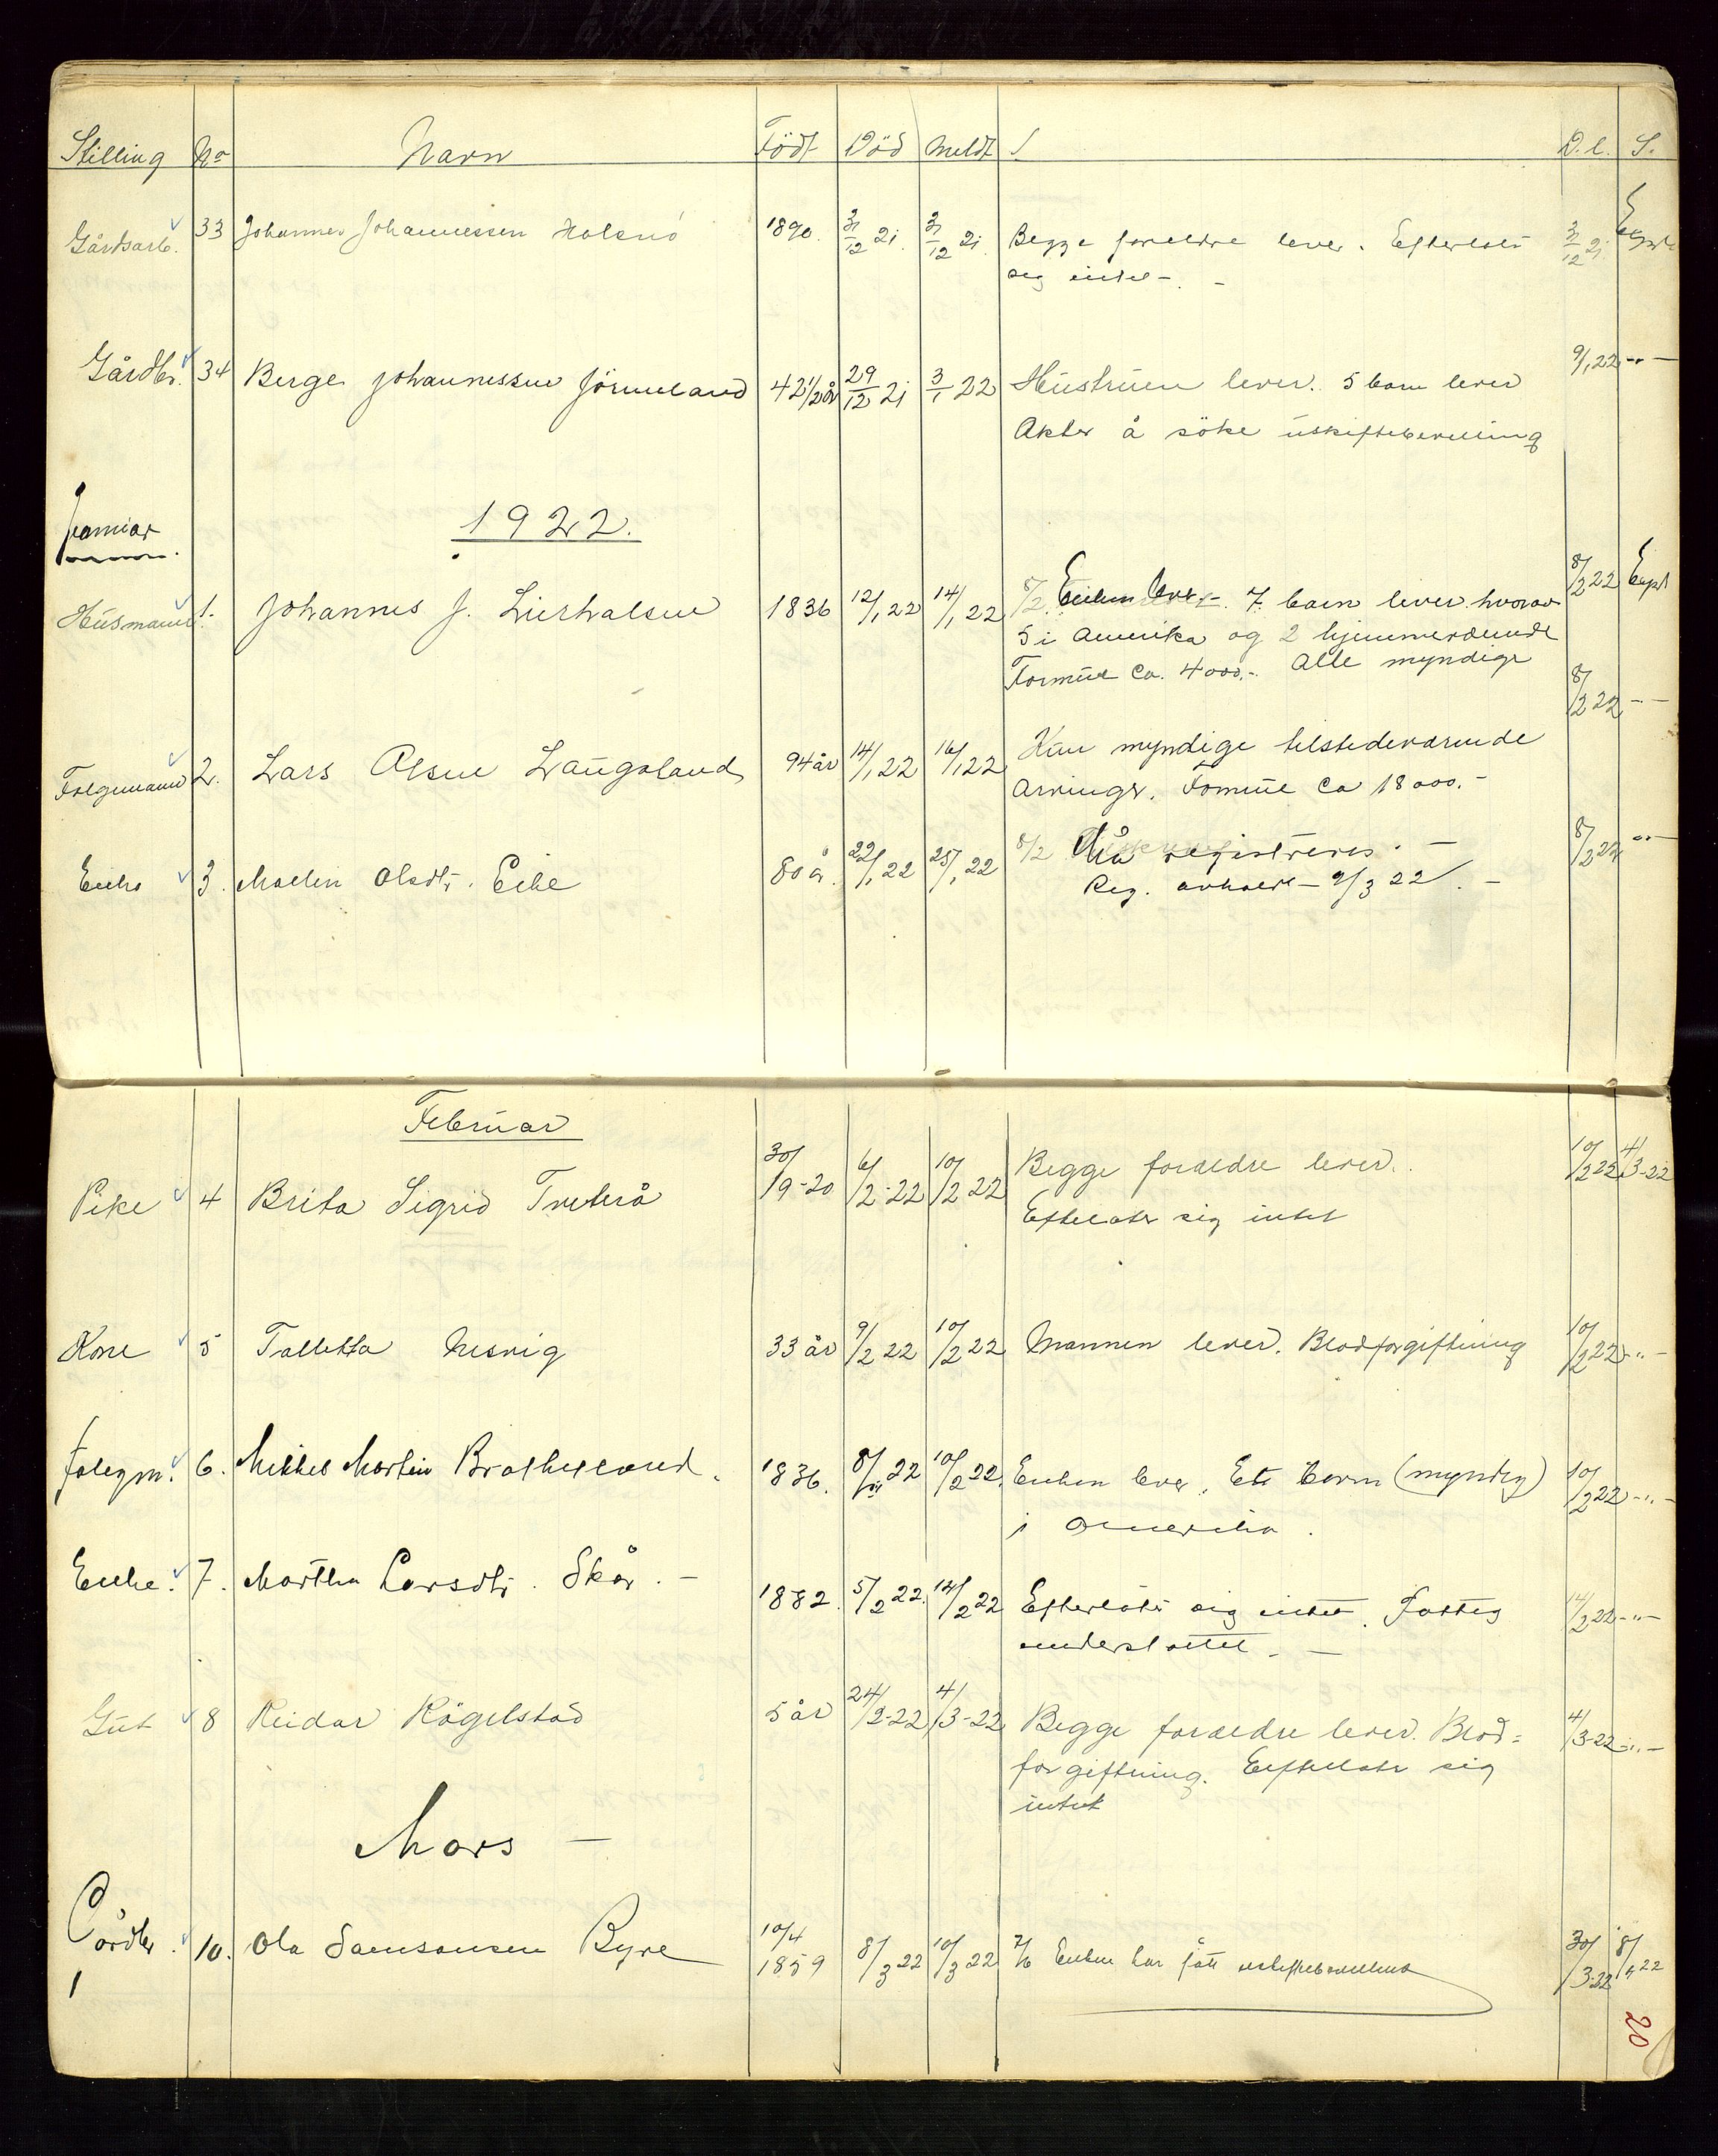 Stilling No Navn Født Död Meldt D.l. S.
Gårdsarb. 33 Johannes Johannessen Halsnö 1890. 31/12 21. 31/12 21. Begge foreldre lever. Efterlot 31/12 21 Expt
sig intet -. -
Gårdbr. 34 Berge Johannessen Jörmeland 42 1/2 år 29/12 21 3/1 22 Hustruen lever. 5 barn lever 9/1 22 -"-
Akter å söke uskiftebevilling
Januar 1922.
Husmann 1. Johannes J. 1836 12/1 22 14/1 22 8/2. Enken lever. 7 barn lever hvorav 8/2 22 Expt
5 i Amerika og 2 hjemmeværende
Formue ca. 4000.- Alle myndige
Folgemann 2. Lars Olsen Laugaland 94 år 14/1 22 16/1 22 Kun myndige tilstedeværende 8/2 22 - -
arvinger. Formue ca 18000.-
Enke 3. Malin Olsdtr. Eike 80 år. 22/1 22 25/1 22 8/2 Må registreres. - 8/2 22 -"-
Reg. avholdt - 9/3 22. -
Februar
Pike 4 Brita Sigrid Tveterå 30/9-20 6/2-22 10/2 22 Begge forældre lever. 10/2 22 4/3-22
Efterlater sig intet
Kone 5 Talletta Nesvig 33 år 9/2 22 10/2 22 Mannen lever. Blodforgiftning 10/2 22 -"-
Folegm. 6. Mikkel Martin Bratheland. 1836. 8/2 22 10/2 22. Enken lever. Ett barn (myndig) 10/2 22 -"-
i Amerika.
Enke. 7. Martha Larsdtr. Skår. - 1882. 5/2 22. 14/2 22 Efterlot sig intet. Fattig 14/2 22 -"-
understöttet. -
Gut 8 Reidar Rögelstad 5 år 24/2-22 4/3-22 Begge forældre lever. Blod= 4/3-22 -"-
forgiftning. Efterlater sig
intet
Mars -
Gårdbr. 10. Ola Samsonsen Byre 10/4 1859 8/3 22 10/3 22 7/6 Enken har fått uskiftebevilling 30/3-22 8/4 22
20